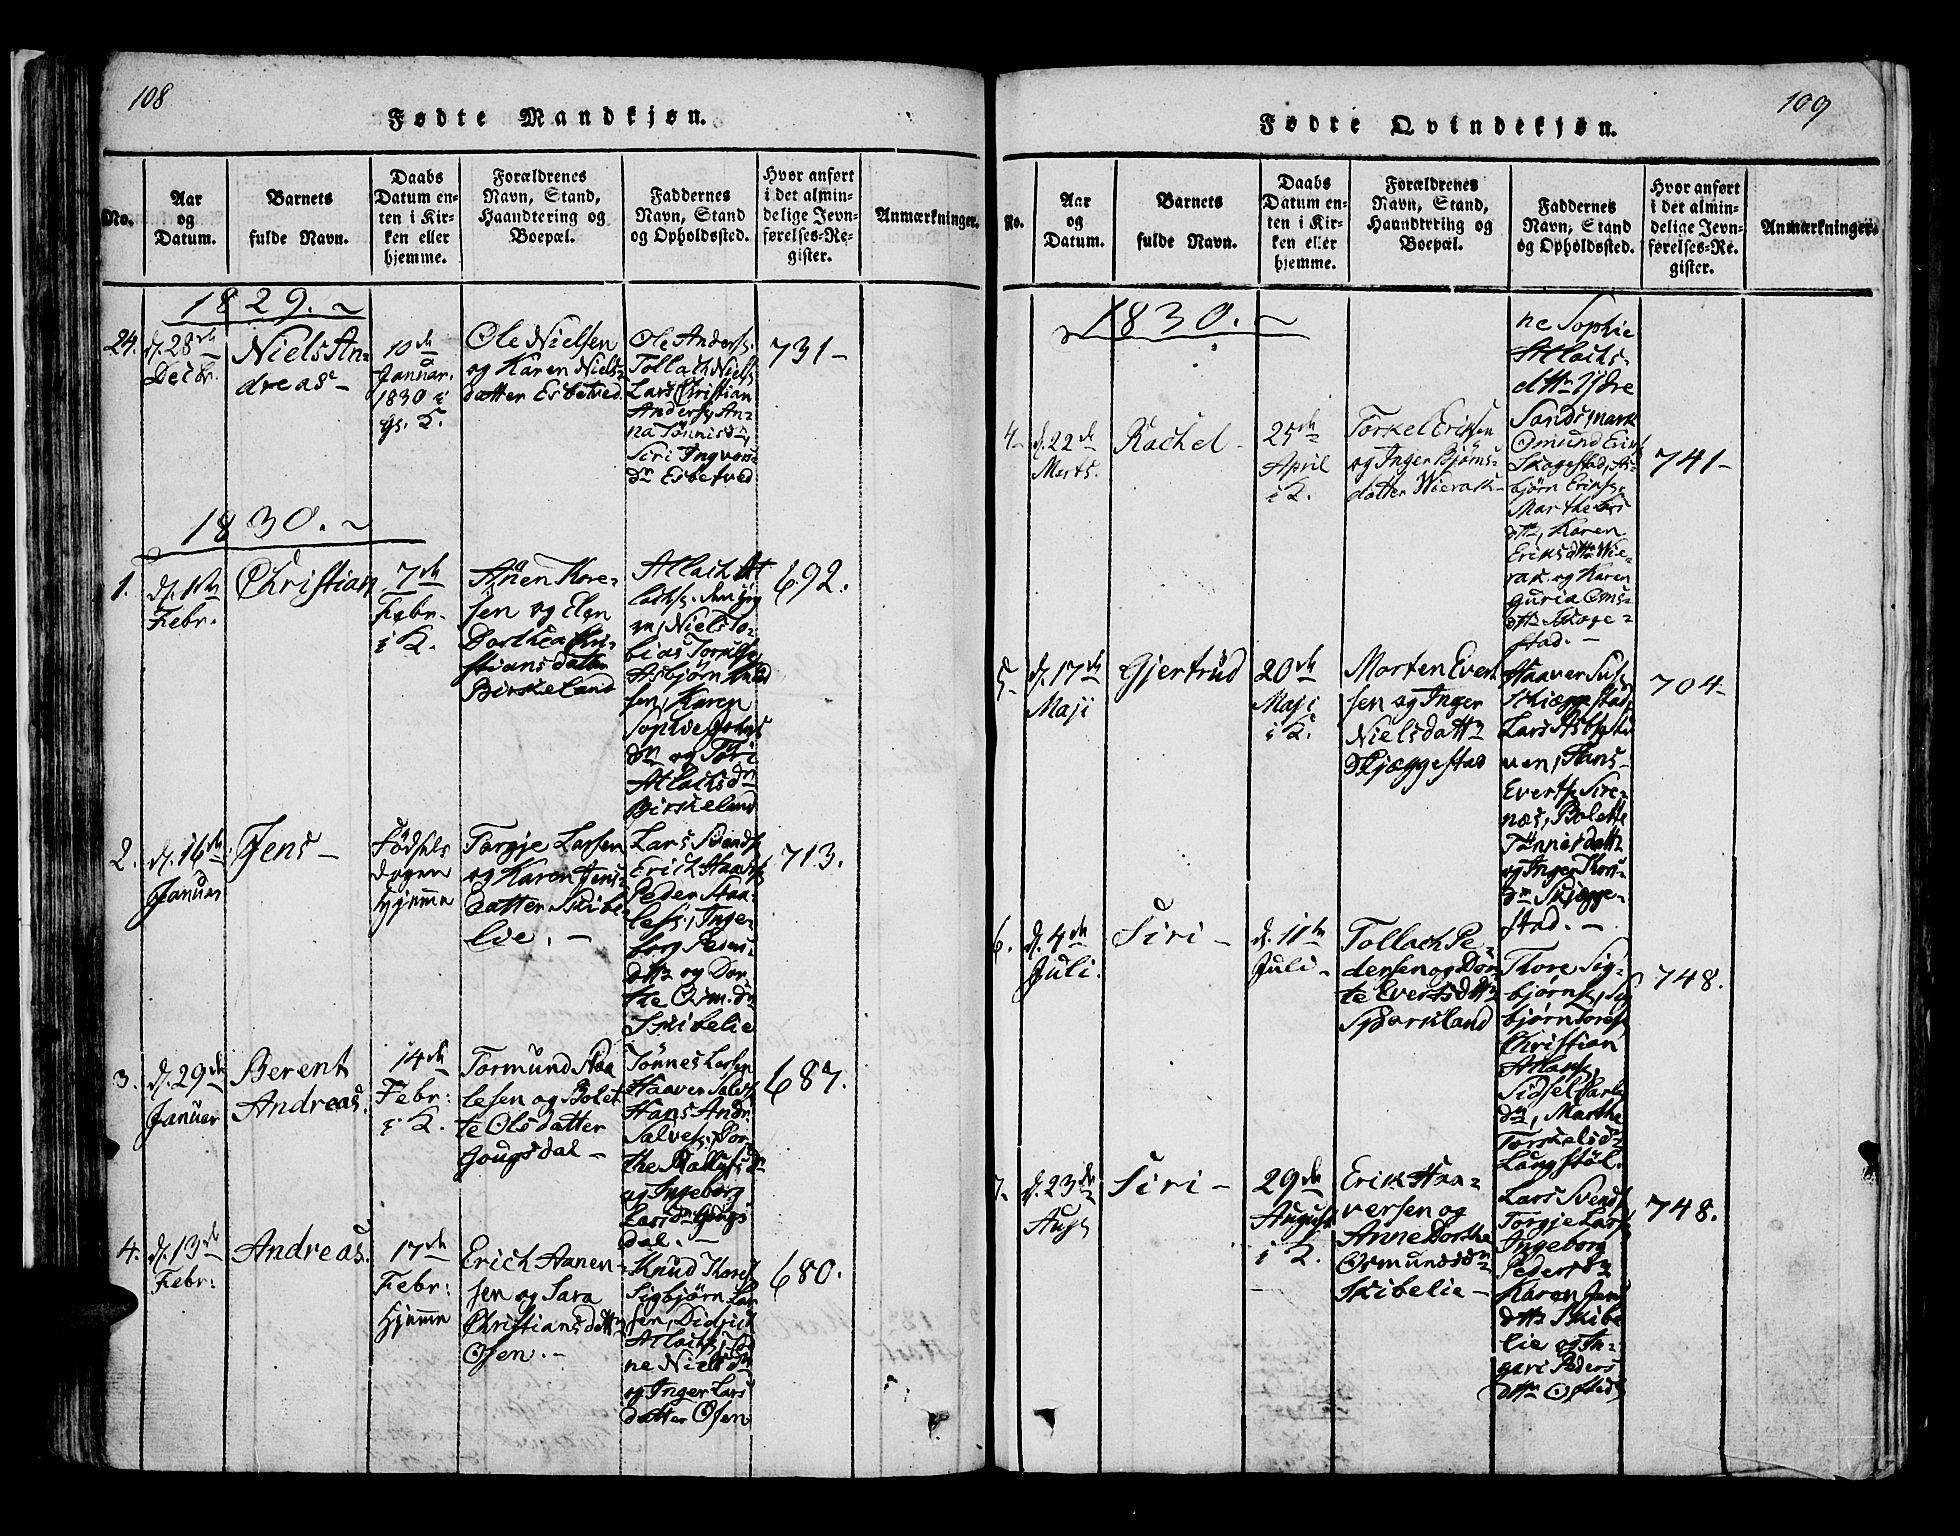 108
Fødte Mandkjøn.
No.
Aar
og
Datum.
Barnets
fulde Navn.
Daabs
Datum en-
ten i Kir-
ken eller
hjemme.
Forældrenes
Navn, Stand,
Haandtering og
Boepæl.
Faddernes
Navn, Stand
og Opholdssted.
Hvor anført
i det almin-
delige Jevn-
førelses-Re-
gister.
Anmærkninger.
1829.
24.
d. 28de
Decbr.
Niels An-
dreas
10de
Januar.
1830 i
K.
Ole Nielsen
og Karen Niels-
datter Esbetved
Ole Anders.
Tollach Niels.
Lars Christian
Anders, An-
na Tønnisdr,
Siri Ingvors-
dr Esbetved
731
1830.
1.
d. 1ste
Febr.
Christian
7de
Febr.
i K.
Aanen Tore-
sen og Elen
Dorthea Chri-
stiansdatter
Birkeland
Atlach At
lachs.
Niels To-
bias
Asbjørn
sen, Karen
Sophie
dr og Siri
Atlachsdr
Birkeland
692.
2.
d. 16de
Januar
Jens
Fødsels
dagen
Hjemme
Torgje Larsen
og Karen Jens-
datter Skibe-
lie.
Lars Svends.
Erich Haavs.
Peder Staa-
les., Inge-
borg Peders-
dttr og Dor-
the Osm.dr
Skibelie
713.
3.
d. 29de
Januar
Berent
Andreas.
14de
Febr:
i K.
Tormund Staa
lesen og Bolet
te Olsdatter
Gougsdal
Tønnes Larsen
Haaver Salves.
Hans Andr.
Salves., Dor-
the
og Ingeborg
Larsdr Gougs
dal.
687.
4.
d. 13de
Febr:
Andreas.
17de
Febr:
Hjemme
Erich Aanen-
sen og Sara
Christiansdttr
Osen.
Knud Thores.
Sigbjørn Lar
sen, Didrich
Atlachs.,
ne Nielsdr
og Inger Lars
datter Osen
680.
109
Fødte Qvindekjøn.
No.
Aar
og
Datum.
Barnets
fulde Navn.
Daabs
Datum en-
ten i Kir-
ken eller
hjemme.
Forældrenes
Navn, Stand,
Haandtering og
Boepæl.
Faddernes
Navn, Stand
og Opholdssted.
Hvor anført
i det almin-
delige Jevn-
førelses-Re-
gister.
Anmærkninger.
1830.
ne Sophie
Atlachs-
dttr Ydre
Sandsmark
4
d. 22de
Marts.
Rachel
25de
April
i K.
Torkel Eriksen
og Inger Bjørns-
datter Wierak
Osmund Eriks.
Skogestad, As-
bjørn Eriks.
Marthe Lars
dttr, Karen
Eriksdttr Wie-
rak og Karen
Guria Oms-
dttr Skoge-
stad.
741
5
d. 17de
Maji
Gjertrud
20de
Maji
i K.
Morten Evert
sen og Inger
Nielsdattr
Skjæggestad
Haaver
Skjæggestad,
Lars
uen, Hans
Everts. Sire-
næs, Bolette
Tønnesdattr
og Inger Thors-
dr Skjægge-
stad.
704
6.
d. 4de
Juli.
Siri
d. 11te
Juli
Tollach Pe-
dersen og Dor-
te Evertsdttr
Spærkland
Thore Sig-
bjørns., Sig
bjørn Tores.
Christian
Atlaks,
Sidsel Carls
dr, Marthe
Torkelsdr
Langstøl.
748.
7.
d. 23de
Augs
Siri
29de
August
i K.
Erik Haa-
versen og
Anne Dorthe
Osmundsdr
Skibelie
Lars Svends.
Torgje Lars.
Ingeborg
Pedersdr
Karen Jens
dttr Skibe
lie og In-
gari Peders
dttr Ofsted
748.